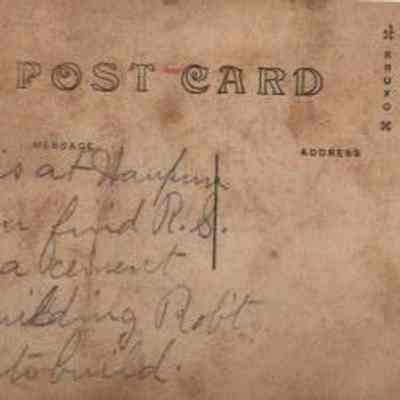 POST CARD
KRUXO
MESSAGE
ADDRESS
is at Haupun
find R.S.
a cement
uilding Rob't
to build.